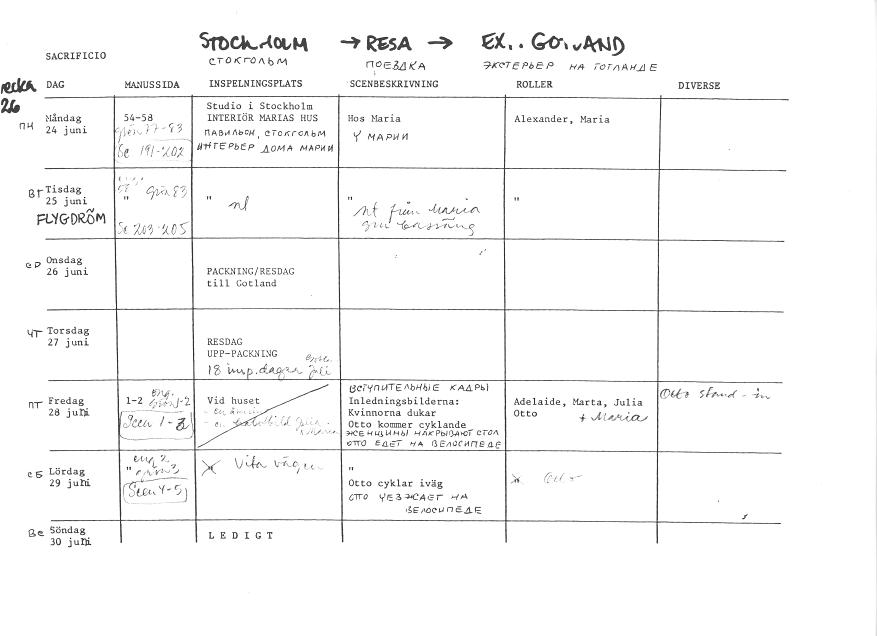 STOCKHOLM → RESA → EX.. GOTLAND
SACRIFICIO
СТОКГОЛЬМ ПОЕЗДКА ЭКСТЕРЬЕР НА ГОТЛАНДЕ
26
DAG MANUSSIDA INSPELNINGSPLATS SCENBESKRIVNING ROLLER DIVERSE
ПН
Måndag
24 juni
54-58
grön 77-83
Sc 191-202
Studio i Stockholm
INTERIÖR MARIAS HUS
ПАВИЛЬОН, СТОКГОЛЬМ
ИНТЕРЬЕР ДОМА МАРИИ
Hos Maria
У МАРИИ
Alexander, Maria
ВТ
Tisdag
25 juni
FLYGDRÖM
58 grön 83
"
Sc 203-205
"
"
nt från Maria
"
СР
Onsdag
26 juni
PACKNING/RESDAG
till Gotland
ЧТ
Torsdag
27 juni
RESDAG
UPP-PACKNING
18 insp.dagar juli
ПТ
Fredag
28 juni
1-2 eng.
grön 1-2
Scen 1-3
Vid huset
ВСТУПИТЕЛЬНЫЕ КАДРЫ
Inledningsbilderna:
Kvinnorna dukar
Otto kommer cyklande
ЖЕНЩИНЫ НАКРЫВАЮТ СТОЛ
ОТТО ЕДЕТ НА ВЕЛОСИПЕДЕ
Adelaide, Marta, Julia
Otto
+ Maria
Otto stand-in
СБ
Lördag
29 juni
eng 2
" grön 3
Scen 4-5
Vita vägen
"
Otto cyklar iväg
ОТТО УЕЗЖАЕТ НА
ВЕЛОСИПЕДЕ
Otto
ВС
Söndag
30 juni
LEDIGT